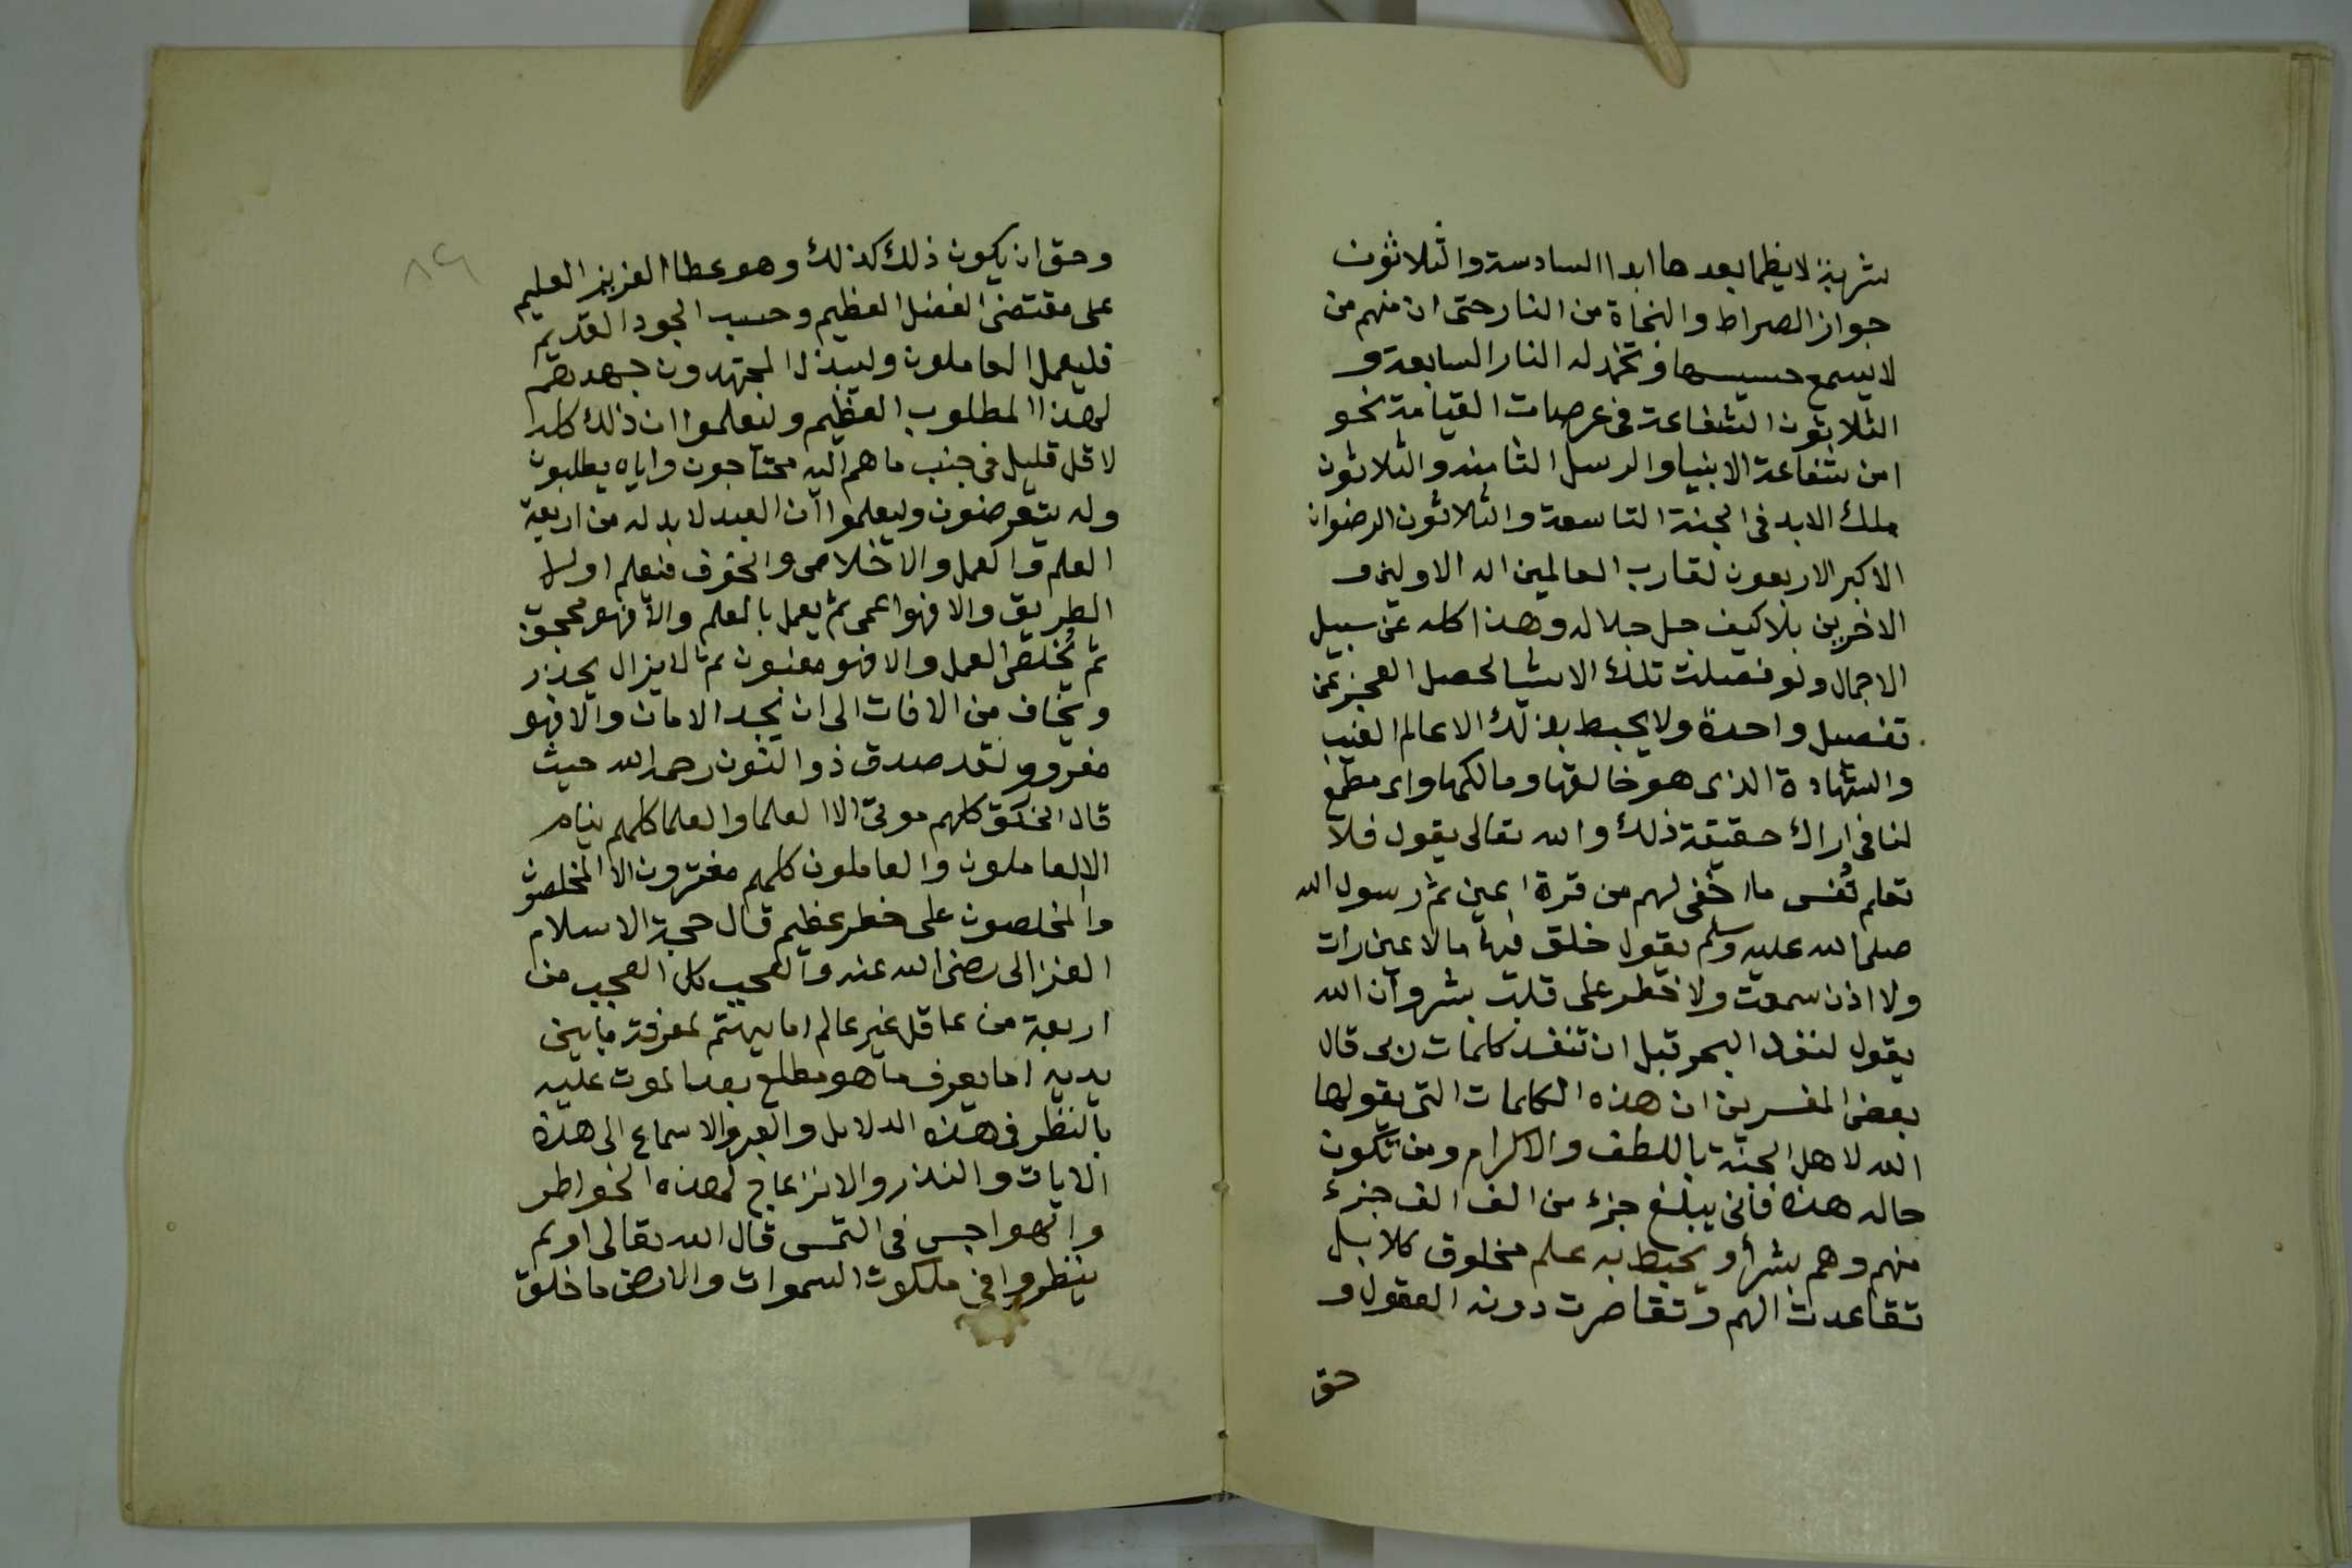 شربة لا يظما بعدها ابدا السادسة والثلاثون
جواز الصراط والنجاة من النار حتى ان منهم من
لا يسمع حسيسها وتخمد له النار السابعة و
الثلاثون الشفاعة في عرصات القيامة نحو
امن شفاعة الانبيا والرسل الثامنه والثلاثون
ملك الابد في الجنة التاسعة والثلاثون الرضوان
الاكبر الاربعون لقارب العالمين اله الاولين و
الاخرين بلا كيف جل جلاله وهذا كله عن سبيل
الاجمال ولو فصلت تلك الاشيا لحصل العجز عن
تفصيل واحدة ولا يحيط بذلك الا عالم الغيب
والشهادة الذى هو خالقها ومالكها واى مطمع
لنا فى اراك حقيقة ذلك والله تعالى يقول فلا
تعلم نفس ما اخفى لهم من قرة اعين ثم رسول الله
صلى الله عليه وسلم يقول خلق فيها ما لا عين رات
ولا اذن سمعت ولا خطر على قلب بشر وان الله
يقول لنفد البحر قبل ان تنفد كلمات ربى قال
بعض المفسرين ان هذه الكلمات التى يقولها
الله لاهل الجنة باللطف والاكرام ومن تكون
حاله هذه فانى يبلغ جزء من الف الف جزء
منهم وهم بشر أو يحيط به علم مخلوق كلا بل
تقاعدت الهم وتقاصرت دونه العقول و
حق
٨٢
وحق ان يكون ذلك كذلك وهو عطا العزيز العليم
على مقتضى الفضل العظيم وحسب الجود القديم
فليعمل العاملون وليبذل المجتهدون جهدهم
لهذا المطلوب العظيم وليعلموا ان ذلك كله
لاقل قليل فى جنب ما هم اليه محتاجون واياه يطلبون
وله يتعرضون وليعلموا ان العبد لا بد له من اربعة
العلم والعمل والاخلاص والخوف فيعلم اولا
الطريق والا فهو اعمى ثم يعمل بالعلم والا فهو محجوب
ثم يخلص العمل والا فهو مغبون ثم لا يزال يحذر
ويخاف من الافات الى ان يجد الامان والا فهو
مغرور ولقد صدق ذو النون رحمه الله حيث
قال الخلق كلهم موتى الا العلما والعلما كلهم نيام
الا العاملون والعاملون كلهم مغترون الا المخلصون
والمخلصون على خطر عظيم قال حجة الاسلام
الغزالى رضى الله عنه والعجب كل العجب من
اربعة من عاقل غير عالم اما يهتم لمعرفة ما بين
يديه اما يعرف ما هو مطلع بعد الموت عليه
بالنظر فى هذه الدلايل والعبر والاسماع الى هذه
الايات والنذر والانزعاج لهذه الخواطر
والهواجس فى النفس قال الله تعالى اولم
ينظروا فى ملكوت السموات والارض ما خلق